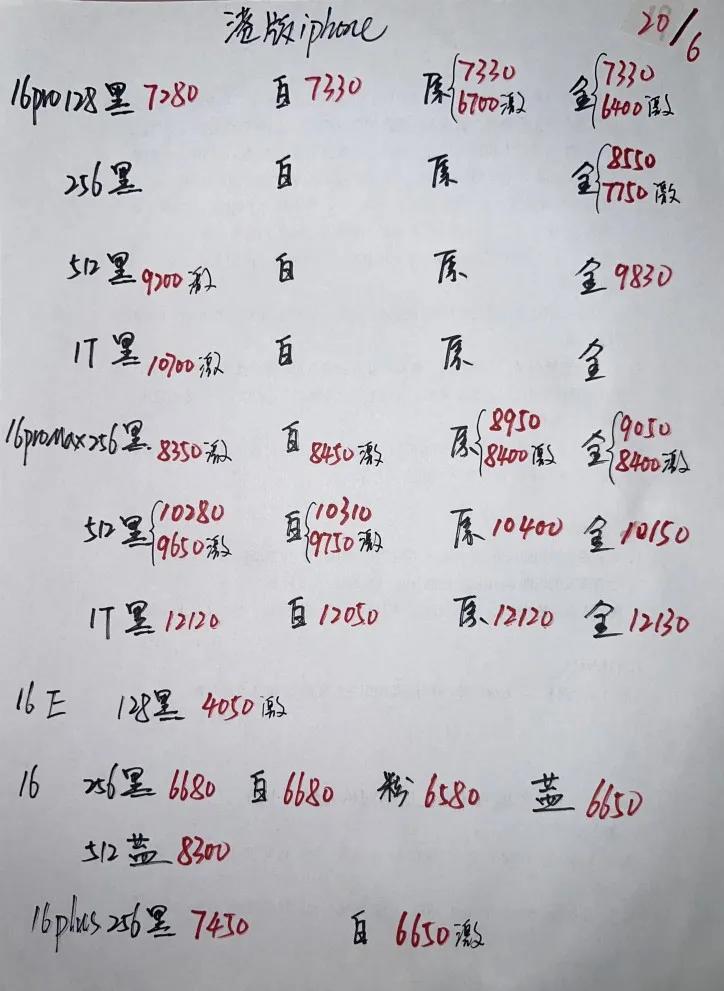 港版iphone 20/6
16pro128黑7280 白7330 原{7330 6700激 金{7330 6400激
256黑 白 原 金{8550 7750激
512黑9200激 白 原 金9830
1T黑10700激 白 原 金
16proMax256黑8350激 白8450激 原{8950 8400激 金{9050 8400激
512黑{10280 9650激 白{10310 9750激 原10400 金10150
1T黑12120 白12050 原12120 金12130
16E 128黑4050激
16 256黑6680 白6680 粉6580 蓝6650
512蓝8300
16plus256黑7450 白6650激